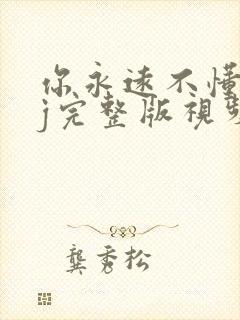 你永远不懂
j完整版视频
龚秀松